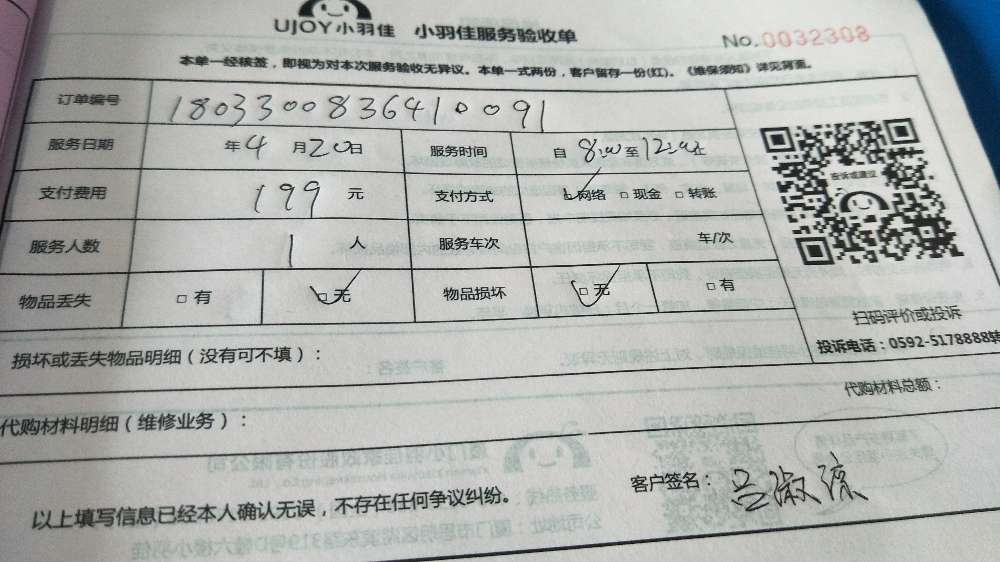 UJOY小羽佳 小羽佳服务验收单
No.0032308
本单一经核签，即视为对本次服务验收无异议。本单一式两份，客户留存一份(红)。《维保须知》详见背面。
订单编号 180330083641 0091
服务日期 年4月20日 服务时间 自8:00至12:00止
支付费用 199 元 支付方式 网络 现金 转账
服务人数 1 人 服务车次 车/次
物品丢失 有 无 物品损坏 无 有
投诉或建议
扫码评价或投诉
投诉电话：0592-5178888转
损坏或丢失物品明细（没有可不填）：
代购材料明细（维修业务）： 代购材料总额：
以上填写信息已经本人确认无误，不存在任何争议纠纷。
客户签名： 吴淑琼